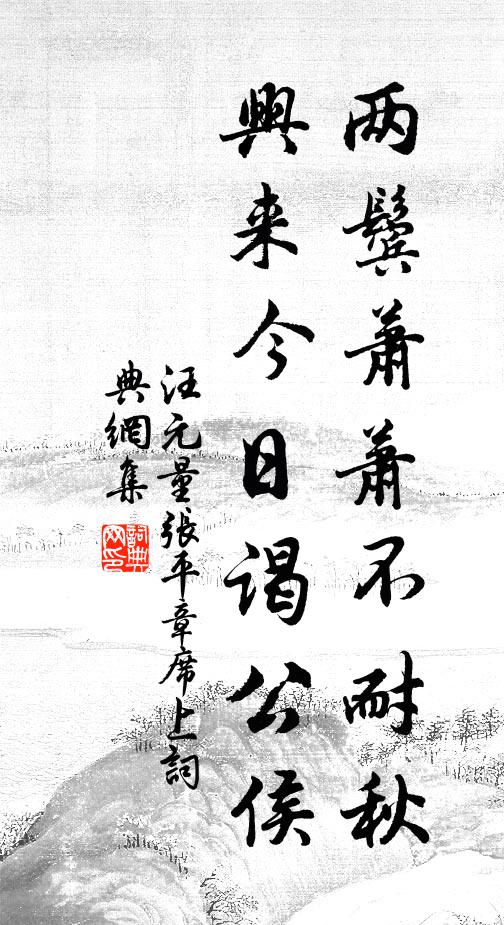 两鬓蕭蕭不耐秋
興来今日谒公侯
汪元量張平章席上詞
典網集
詞典網印